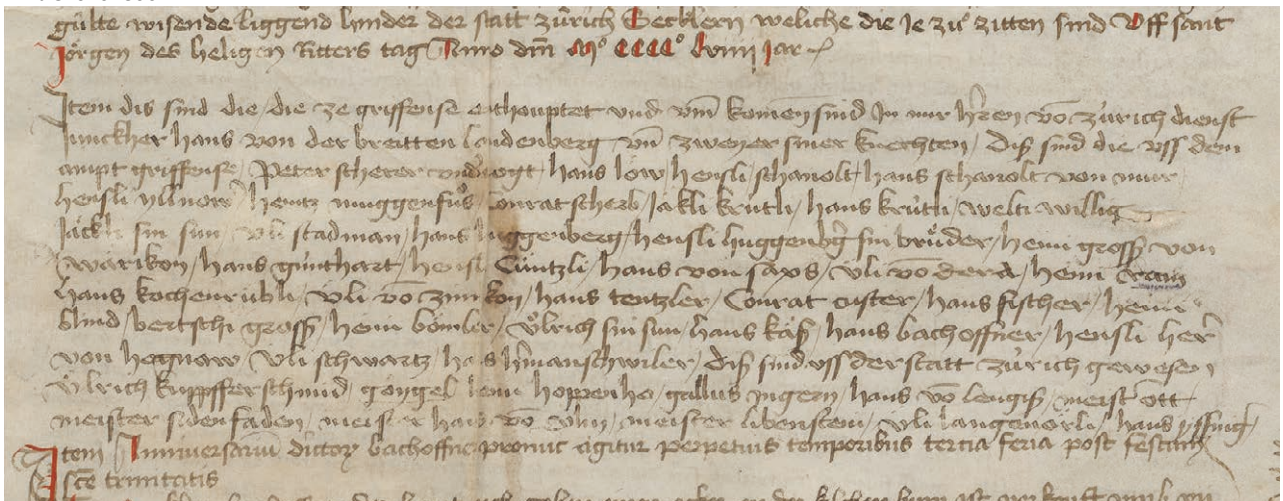 gülte wisende liggend hinder der statt zürich Secklern weliche die Je zů zitten sind Uff sant
Jörgen des heligen Ritters tag Anno dm̄ M° CCCC° Lviiij Jar
Item dis sind die / die ze griffense enthouptet vnd vm̄ komen sind Jn mir h̄ren vō zürich dienst
Junckher hans von der breitten landenberg vn̄ zweyer siner knechten / Diß sind die vss dem
ampt griffense / Peter scherer vndvogt / hans löw hensli schanolt / hans schanolt von murr
hensli yllnow / heintz muggenfůs / Conrat scherb / Jäkli krütli / hans krütli / welti willig
Jäckli sin sun / vli stadman / hans huggenberg / hensli huggenbḡ sin brůder / heini gross von
wärikon / hans günthart / hensli Cüntzli / hans von saxs / vli vō der / heini
hans kochenrübli / vli vō zimikon / hans tentzler / Conrat custer / hans fischer / heini
blind / bertschi gross / heini bömler / vͦlrich sin sun / hans käß / hans bachoffner / hensli her̄
von hegnow / vli schwartz / hans h̄manschwiler / diß sind vss der statt zürich gewesen
Vͦlrich kupffer schmid gongel heini hoppenho / gallus yngern / hans vō lengiß / meist̄ ott
meister sidenfaden / meister hans vō vlm / meister libenstein / vli langenörli / hans yssnig
Item Anniversariū dictoꝝ bachoffne agitur perpetuis temporibus tercia feria post festum
scē trinitatis